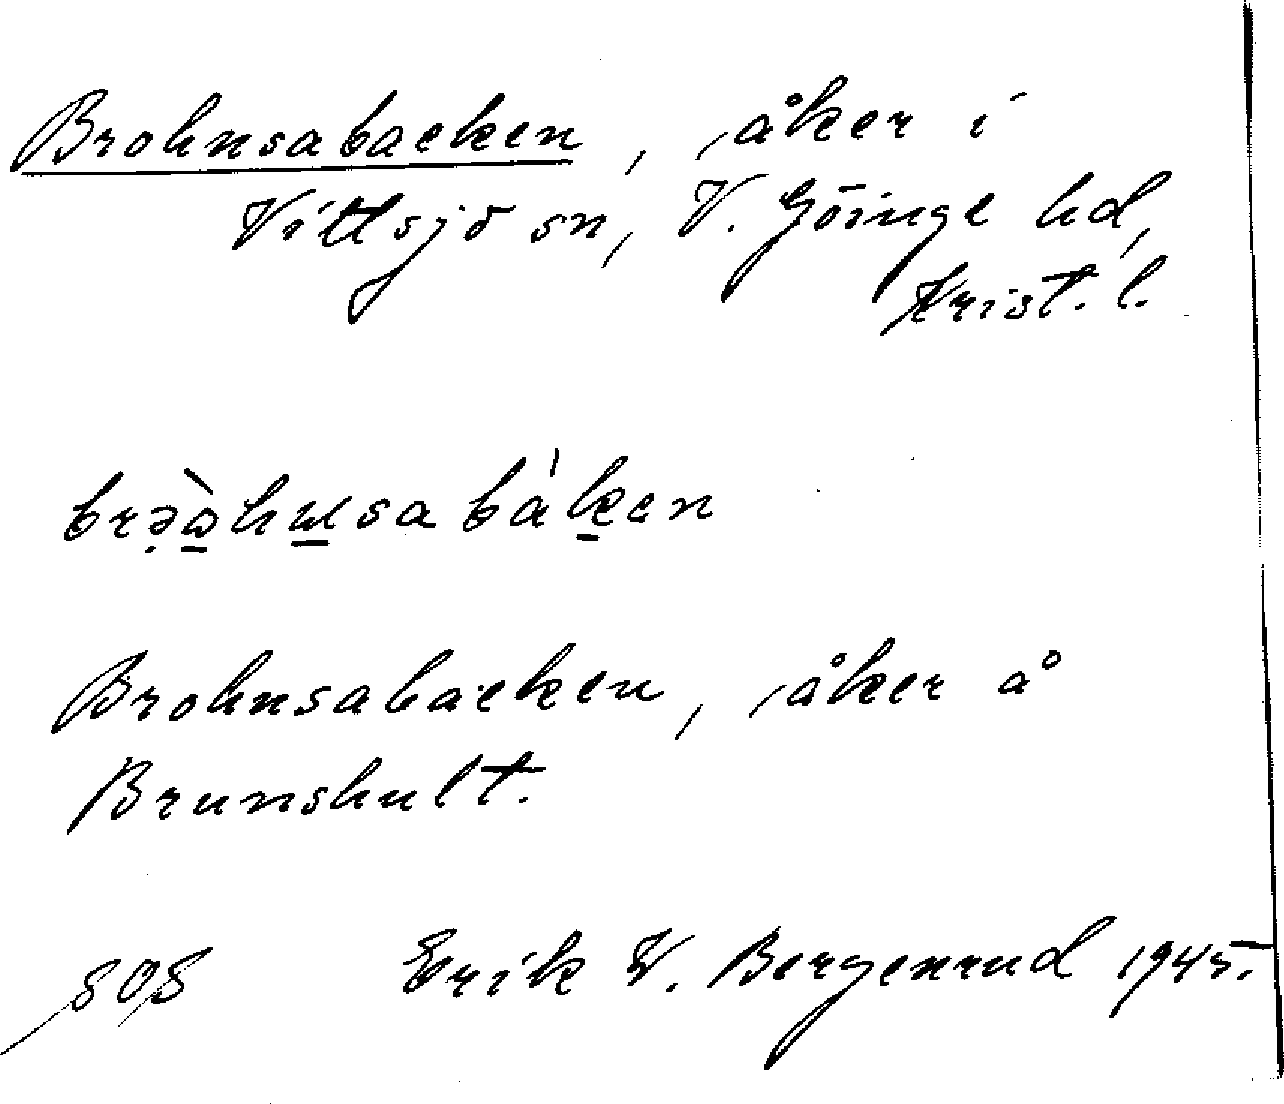 Brohnsabacken, åker i
Vittsjö sn, V. Göinge hd,
Krist. l.
Brohnsabacken, åker å
Brunshult.
808
Erik W. Bergenrud 1945.